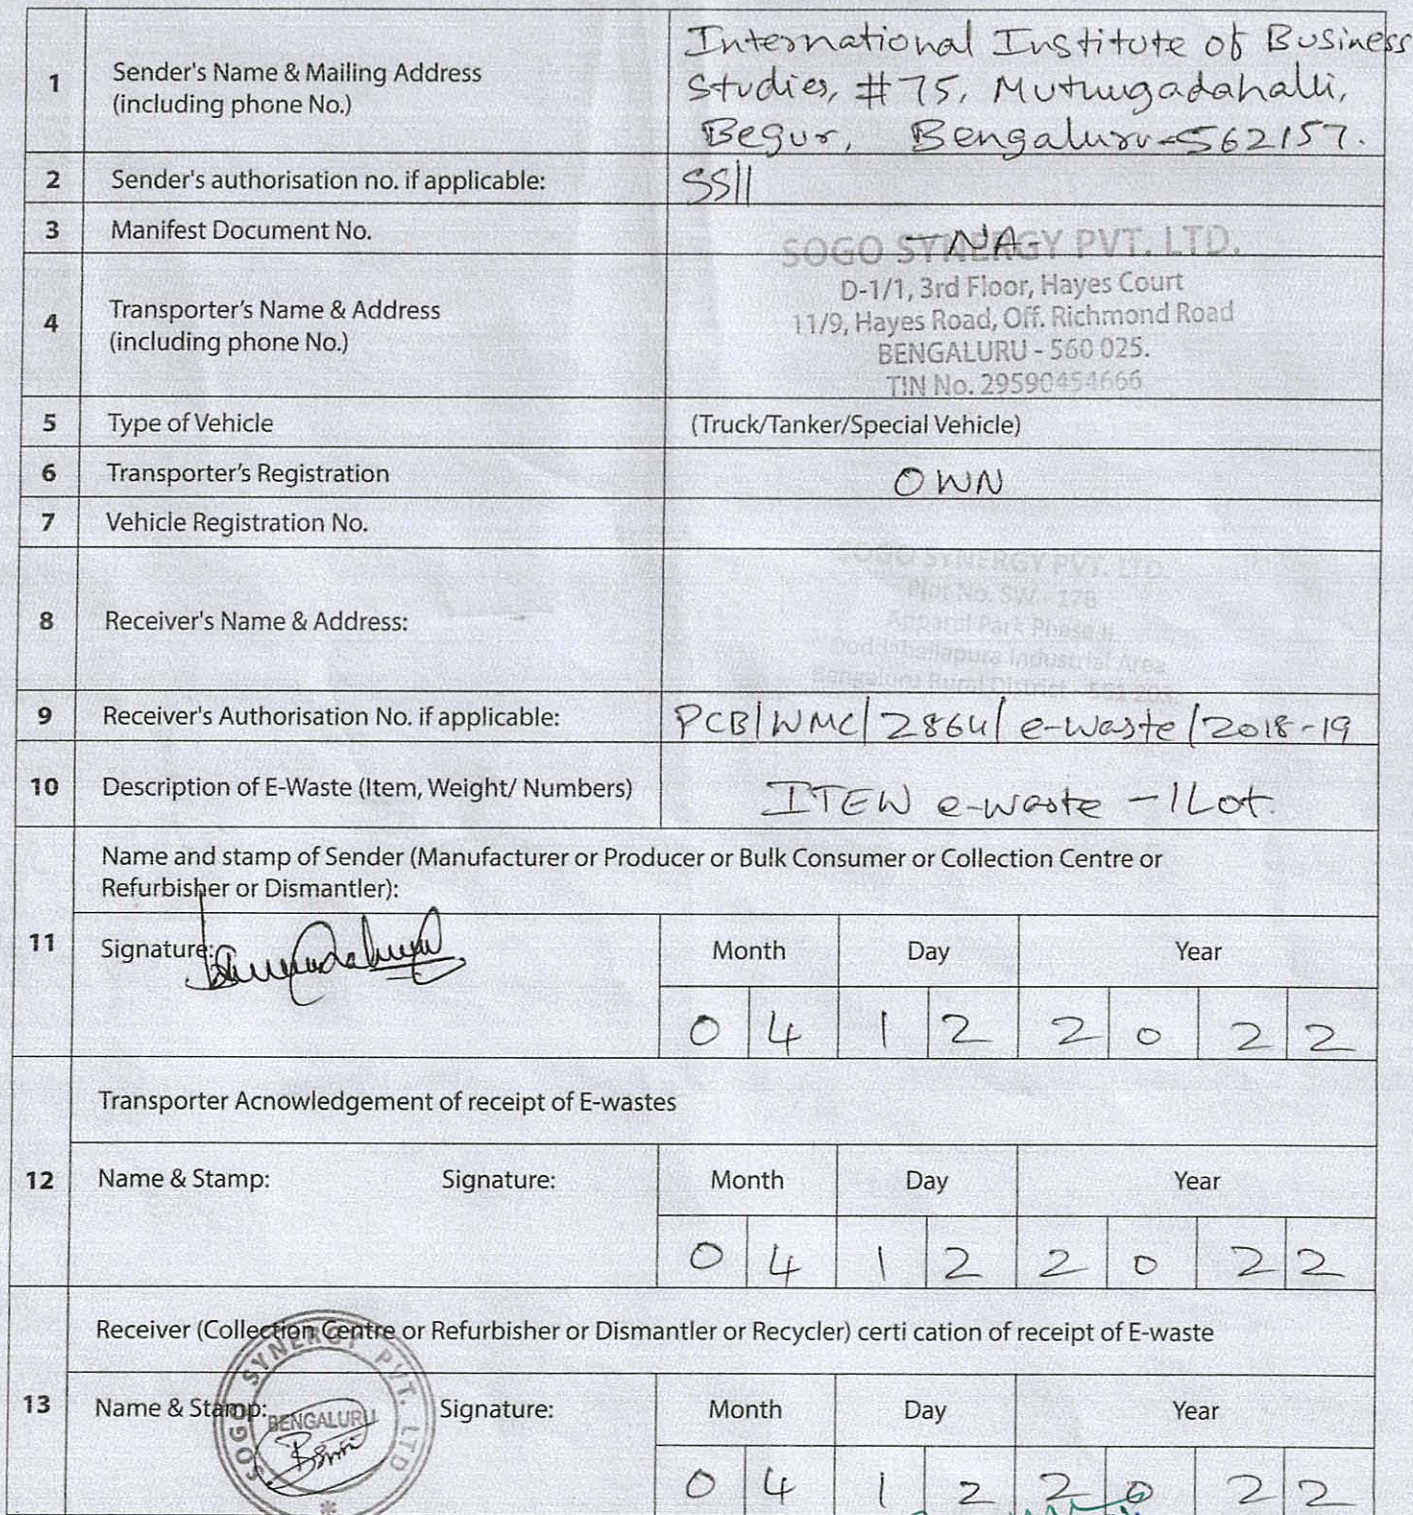 1 Sender's Name & Mailing Address
(including phone No.)
International Institute of Business
Studies, #75, Muthugadahalli,
Begur, Bengaluru-562157.
2 Sender's authorisation no. if applicable: SSII
3 Manifest Document No. -NA-
4 Transporter's Name & Address
(including phone No.)
SOGO SYNERGY PVT. LTD.
D-1/1, 3rd Floor, Hayes Court
11/9, Hayes Road, Off. Richmond Road
BENGALURU - 560 025.
TIN No. 29590454666
5 Type of Vehicle (Truck/Tanker/Special Vehicle)
6 Transporter's Registration OWN
7 Vehicle Registration No.
8 Receiver's Name & Address:
SOGO SYNERGY PVT. LTD.
Plot No. SW - 178
Apparel Park Phase II
Doddaballapura Industrial Area
Bengaluru Rural District - 561 203.
9 Receiver's Authorisation No. if applicable: PCB/WMC/2864/e-waste/2018-19
10 Description of E-Waste (Item, Weight/ Numbers) ITEW e-waste - 1 Lot.
11 Name and stamp of Sender (Manufacturer or Producer or Bulk Consumer or Collection Centre or
Refurbisher or Dismantler):
Signature: Month Day Year
0 4 1 2 2 0 2 2
Transporter Acnowledgement of receipt of E-wastes
12 Name & Stamp: Signature: Month Day Year
0 4 1 2 2 0 2 2
Receiver (Collection Centre or Refurbisher or Dismantler or Recycler) certi cation of receipt of E-waste
13 Name & Stamp: Signature: Month Day Year
SOGO SYNERGY PVT. LTD
BENGALURU
0 4 1 2 2 0 2 2